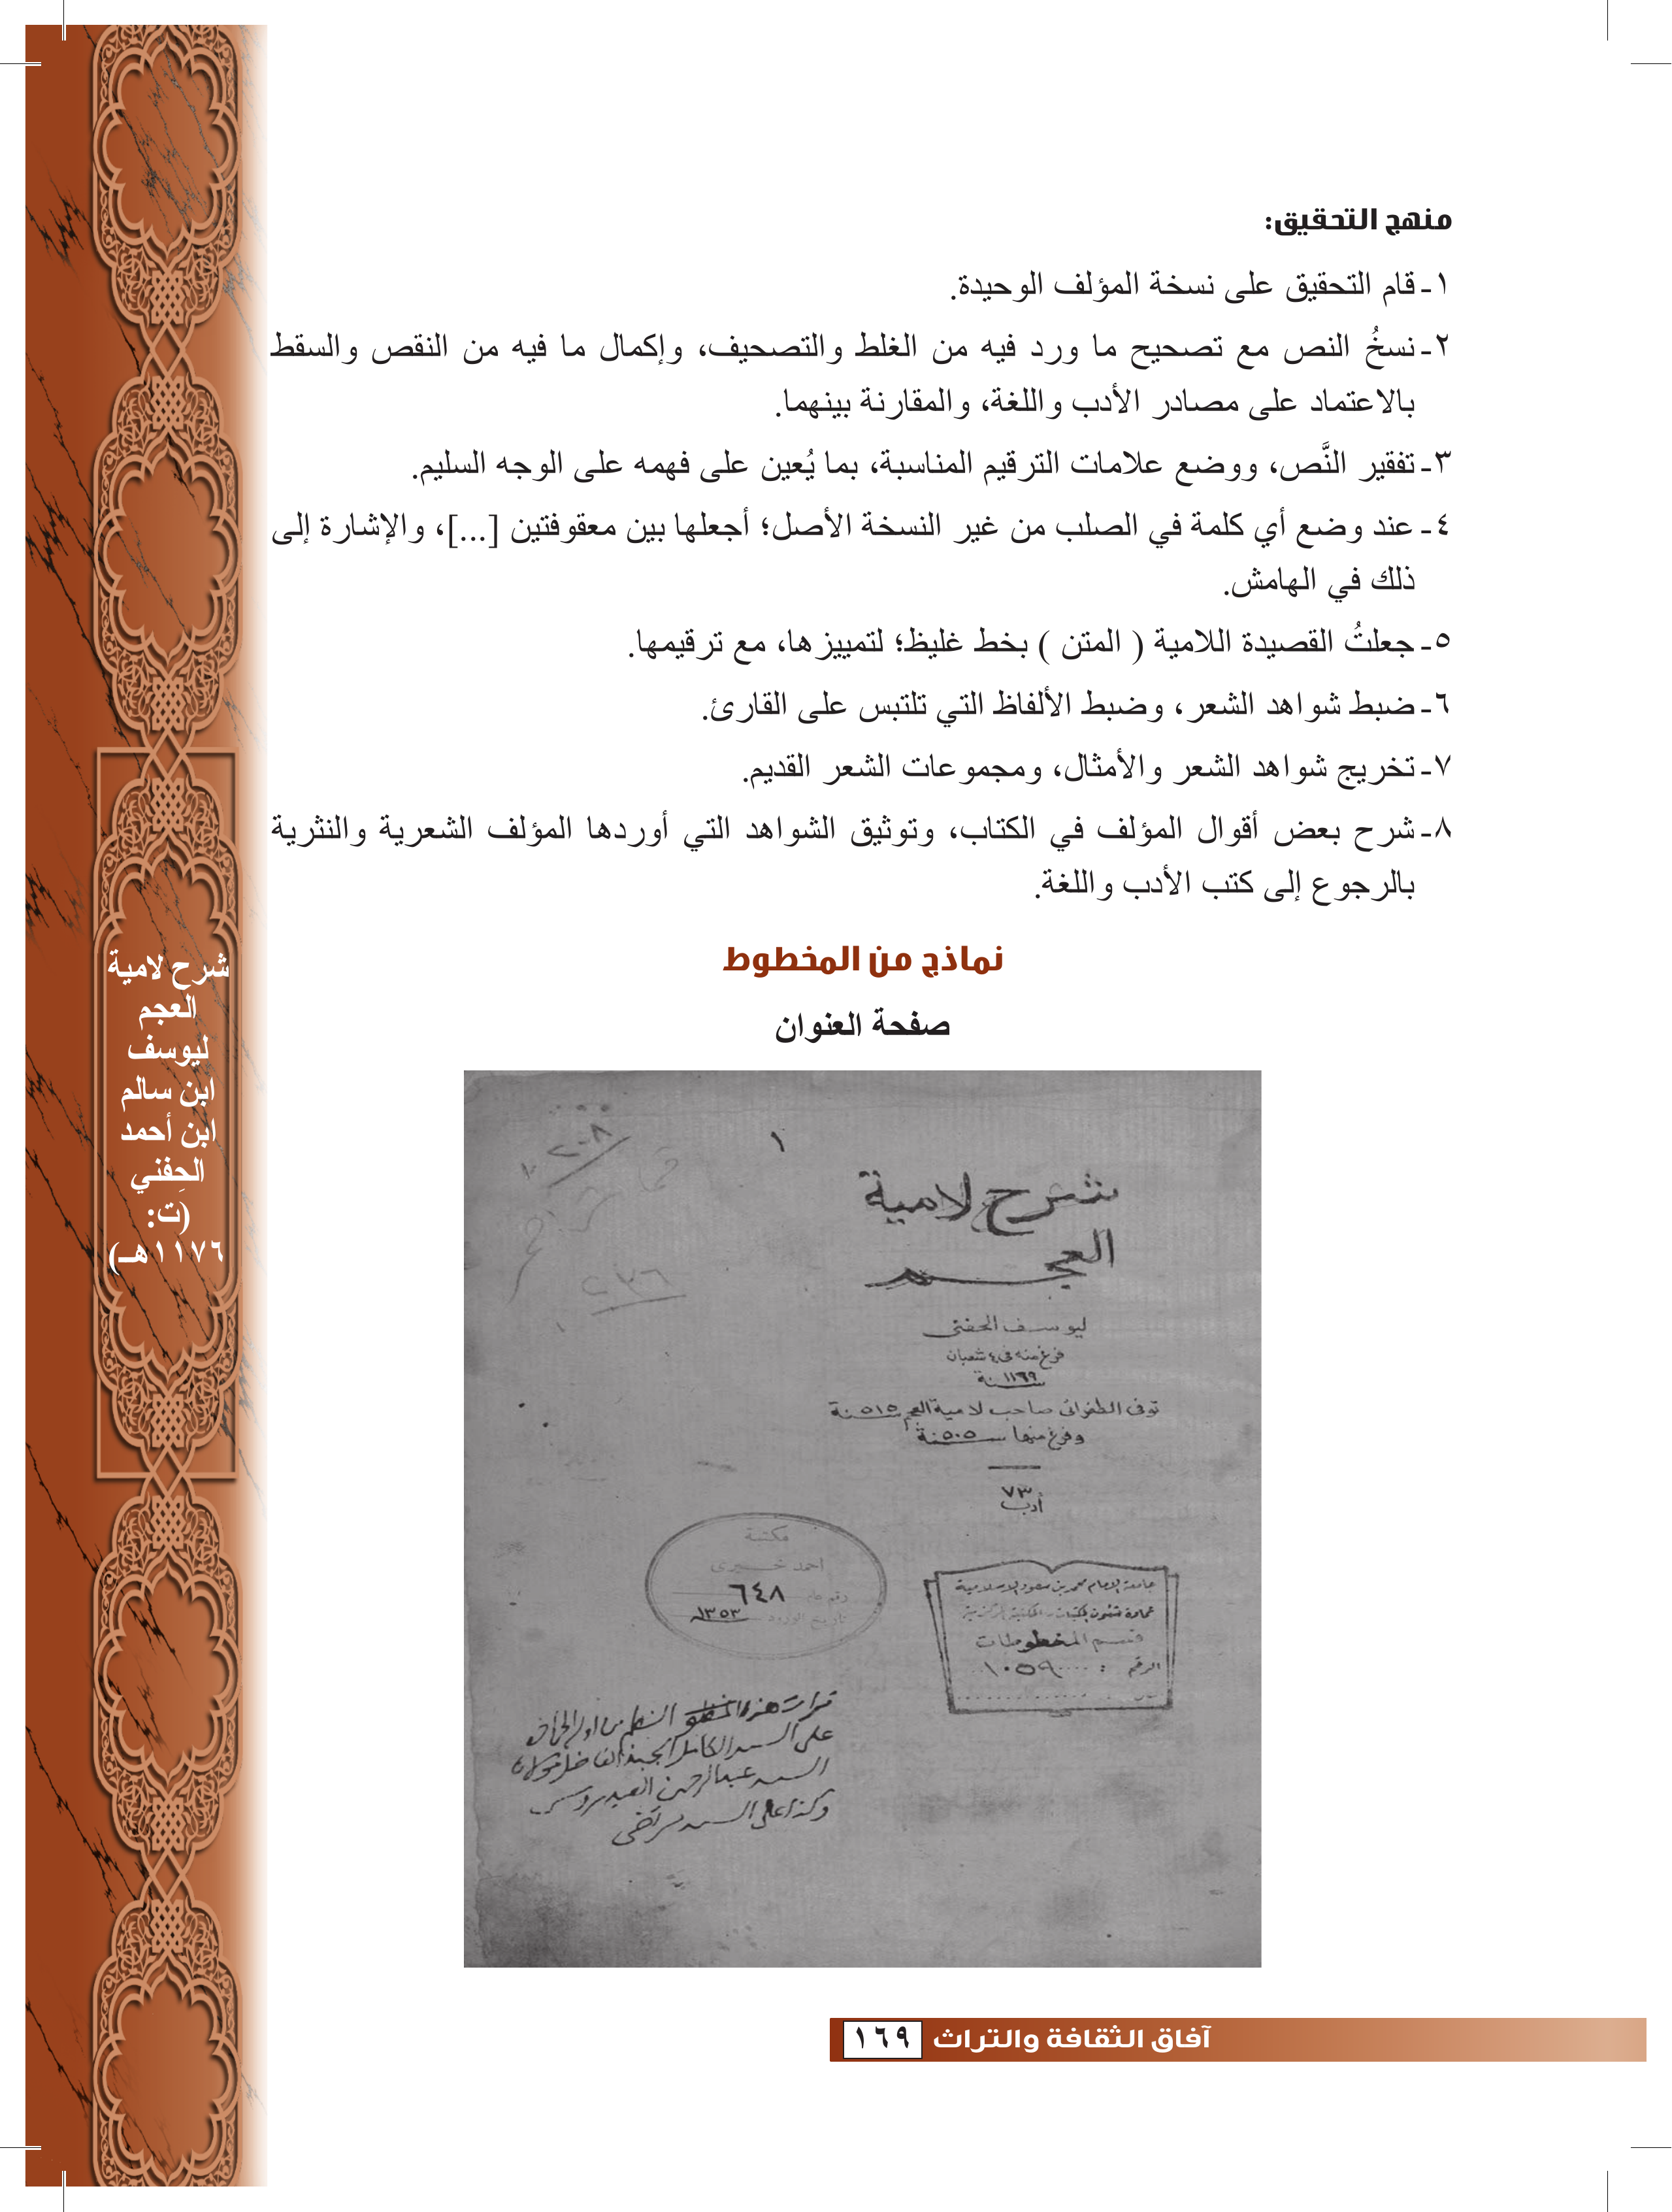 منهج التحقيق:
١- قام التحقيق على نسخة المؤلف الوحيدة.
٢- نسخُ النص مع تصحيح ما ورد فيه من الغلط والتصحيف، وإكمال ما فيه من النقص والسقط
بالاعتماد على مصادر الأدب واللغة، والمقارنة بينهما.
٣- تفقير النَّص، ووضع علامات الترقيم المناسبة، بما يُعين على فهمه على الوجه السليم.
٤- عند وضع أي كلمة في الصلب من غير النسخة الأصل؛ أجعلها بين معقوفتين [...]، والإشارة إلى
ذلك في الهامش.
٥- جعلتُ القصيدة اللامية ( المتن ) بخط غليظ؛ لتمييزها، مع ترقيمها.
٦- ضبط شواهد الشعر، وضبط الألفاظ التي تلتبس على القارئ.
٧- تخريج شواهد الشعر والأمثال، ومجموعات الشعر القديم.
٨- شرح بعض أقوال المؤلف في الكتاب، وتوثيق الشواهد التي أوردها المؤلف الشعرية والنثرية
بالرجوع إلى كتب الأدب واللغة.
نماذج من المخطوط
صفحة العنوان
١
شرح لامية
العجم
ليوسف الحفنى
فرغ منه فى ٤ شعبان
سنة ١١٦٩
توفى الطغرائى صاحب لامية العجم سنة ٥١٥
وفرغ منها سنة ٥٠٥
٧٣
أدب
مكتبة
احمد خيرى
رقم عام ٦٤٨
تاريخ الورود ١٣٥٣
جامعة الإمام محمد بن سعود الإسلامية
عمادة شئون المكتبات - المكتبة المركزية
قسم المخطوطات
الرقم : ١٠٥٩
على السيد الكامل
السيد عبدالرحمن العيدروس
وكذا على السيد مرتضى
شرح لامية
العجم
ليوسف
ابن سالم
ابن أحمد
الحِفني
(ت:
١١٧٦هـ)
آفاق الثقافة والتراث ١٦٩